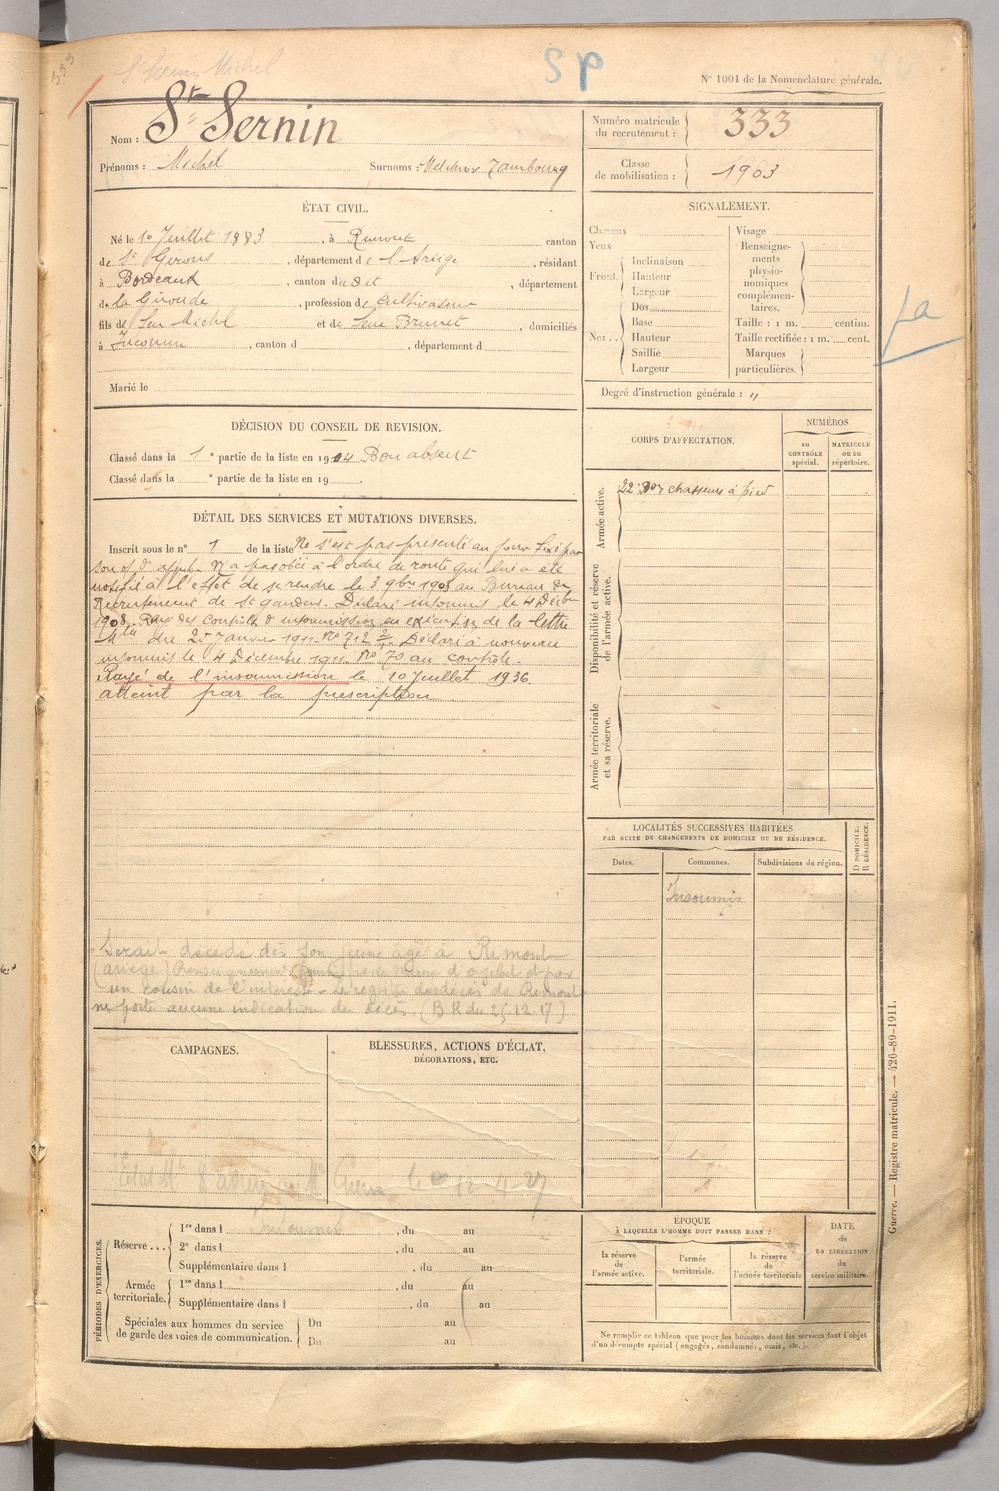 333
St Sernin Michel
SP
N° 1001 de la Nomenclature générale.
Nom : St Sernin
Prénoms : Michel Surnoms : Melchior Tambourg
Numéro matricule du recrutement : 333
Classe de mobilisation : 1903
ÉTAT CIVIL.
Né le 10 Juillet 1883, à Rimont canton
de St Girons, département de l'Ariège, résidant
à Bordeaux, canton dudit, département
de la Gironde, profession de cultivateur
fils de feu Michel et de feue Brunet, domiciliés
à Inconnu, canton d , département d
Marié le
SIGNALEMENT.
Cheveux
Yeux
Front. Inclinaison
Hauteur
Largeur
Nez.. Dos
Base
Hauteur
Saillie
Largeur
Visage
Renseignements physionomiques complémentaires.
Taille : 1 m. centim.
Taille rectifiée : 1 m. cent.
Marques particulières.
Degré d'instruction générale : "
DÉCISION DU CONSEIL DE REVISION.
Classé dans la 1e partie de la liste en 1904 Bon absent
Classé dans la e partie de la liste en 19 .
CORPS D'AFFECTATION.
NUMÉROS
au CONTRÔLE spécial.
MATRICULE ou au répertoire.
Armée active.
22e Bon chasseurs à pied
Disponibilité et réserve de l'armée active.
Armée territoriale et sa réserve.
DÉTAIL DES SERVICES ET MUTATIONS DIVERSES.
Inscrit sous le n° 1 de la liste Ne s'est pas présenté au jour fixé par
son o/ d'appel. N'a pas obéi à l'ordre de route qui lui a été
notifié à l'effet de se rendre le 3 9bre 1908 au Bureau de
Recrutement de St Gaudens. Déclaré insoumis le 4 Décbre
1908. Rayé des contrôles d'insoumission en exécution de la lettre
Mle du 25 Janvier 1911 N° 712 2/ Déclaré à nouveau
insoumis le 4 Décembre 1911 N° 70 au contrôle.
Rayé de l'insoumission le 10 Juillet 1936
atteint par la prescription
Serait décédé dès son jeune age à Rimont
(ariège) Renseignement par le Maire d et par
un cousin de l'intéressé - Le registre des décès de Rimont
ne porte aucune indication du décès. (B R du 25.12.17)
LOCALITÉS SUCCESSIVES HABITÉES
PAR SUITE DE CHANGEMENTS DE DOMICILE OU DE RÉSIDENCE.
Dates. Communes. Subdivisions de région.
D DOMICILE. R RÉSIDENCE.
Insoumis
CAMPAGNES.
BLESSURES, ACTIONS D'ÉCLAT,
DÉCORATIONS, ETC.
Guerre le 12-4-27
PÉRIODES D'EXERCICES.
Réserve... 1re dans l Insoumis, du au
2e dans l , du au
Supplémentaire dans l , du au
Armée territoriale. 1re dans l , du au
Supplémentaire dans l , du au
Spéciales aux hommes du service de garde des voies de communication. Du au
Du au
ÉPOQUE
À LAQUELLE L'HOMME DOIT PASSER DANS :
la réserve de l'armée active.
l'armée territoriale.
la réserve de l'armée territoriale
DATE de LA LIBÉRATION du service militaire.
Ne remplir ce tableau que pour les hommes dont les services font l'objet
d'un décompte spécial (engagés, condamnés, omis, etc.).
Guerre. — Registre matricule. — 426-89-1911.